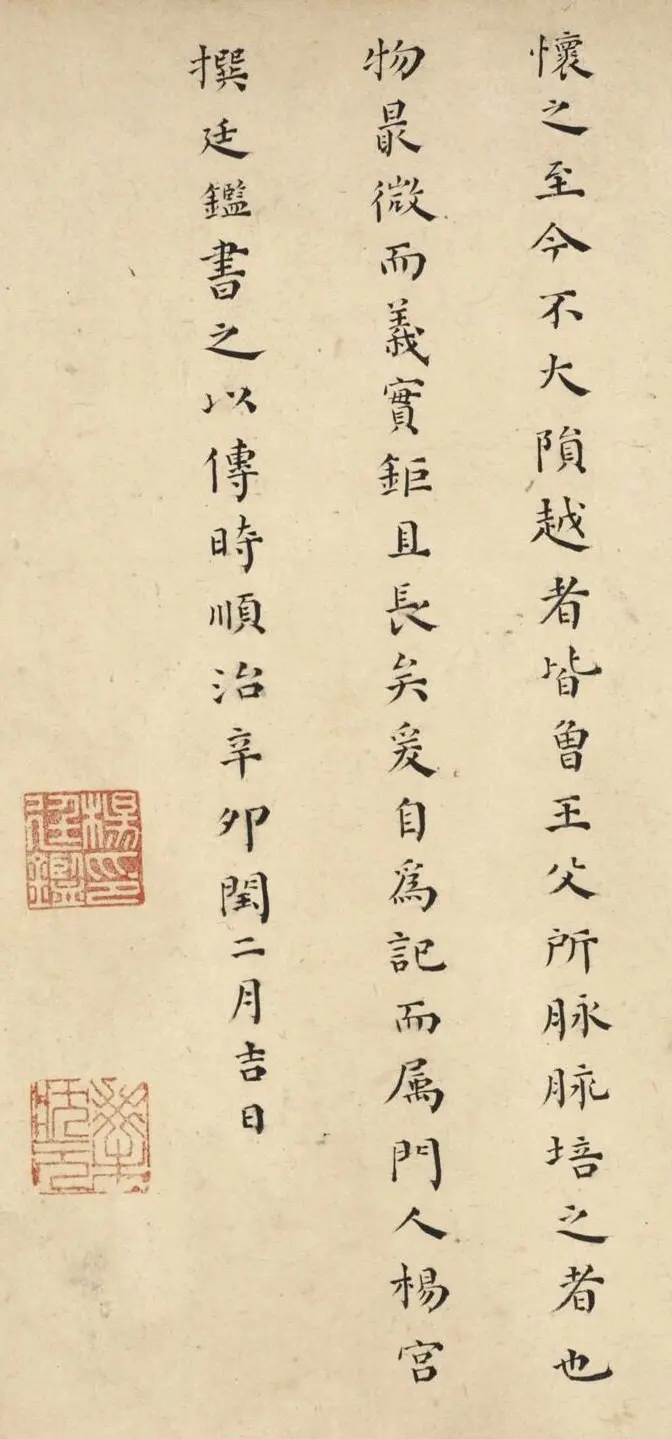 懷之至今不大隕越者皆曾王父所脉脉培之者也
物最微而義實鉅且長矣爰自為記而属門人楊宮
撰廷鑑書之以傳時順治辛卯閏二月吉日
楊廷鑑印